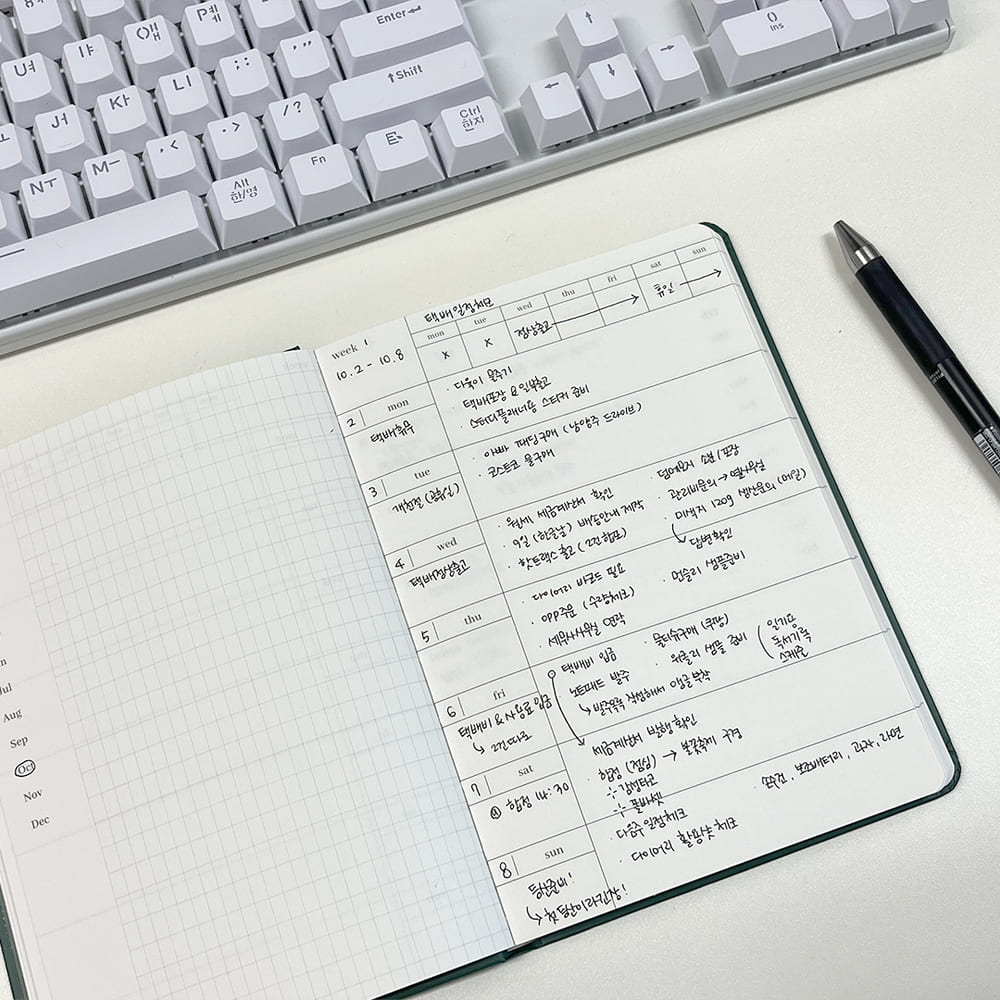 ㅕ U
ㅑ
ㅒ
ㅖ P
Enter ↵
ㅓ J
ㅏ K
ㅣ L
: ;
" '
↑ Shift
ㅜ N
ㅡ M
< ,
> .
/ ?
Alt
한/영
Fn
Ctrl
한자
↑
←
↓
→
0
Ins
택배 일정체크
week 1
10.2 - 10.8
mon tue wed thu fri sat sun
x x 정상출고 → 휴일 →
2 mon
택배휴무
· 다육이 물주기
택배포장 & 일부출고
· 스터디플래너용 스티커 준비
3 tue
개천절 (공휴일)
· 아빠 패딩구매 (남양주 드라이브)
· 코스트코 물구매
4 wed
택배정상출고
· 월세 세금계산서 확인
· 9일 (한글날) 배송안내 제작
· 핫트랙스 출고 (2건 합포)
떡메모지 소분/포장
· 관리비문의 →
· 미색지 120g 생산문의 (메일)
답변확인
5 thu
· 다이어리 바코드 필요
· opp주문 (수량체크)
· 세무사사무실 연락
· 먼슬리 샘플준비
6 fri
택배비 & 사용료 입금
↳ 2건 따로
택배비 입금
· 노트패드 발주
↳ 발주목록 작성해서 앵글부착
· 물티슈구매 (쿠팡)
· 위클리 샘플 준비
일기용
독서기록
스케줄
7 sat
합정 14:30
세금계산서 발행 확인
· 합정 (점심) → 불꽃축제 구경
감성타코
폴바셋
8 sun
등산준비!
↳ 첫 등산이라 긴장!
· 다음주 일정체크
· 다이어리 활용샷 체크
, 보조배터리, 과자, 라면
Jul
Aug
Sep
Oct
Nov
Dec